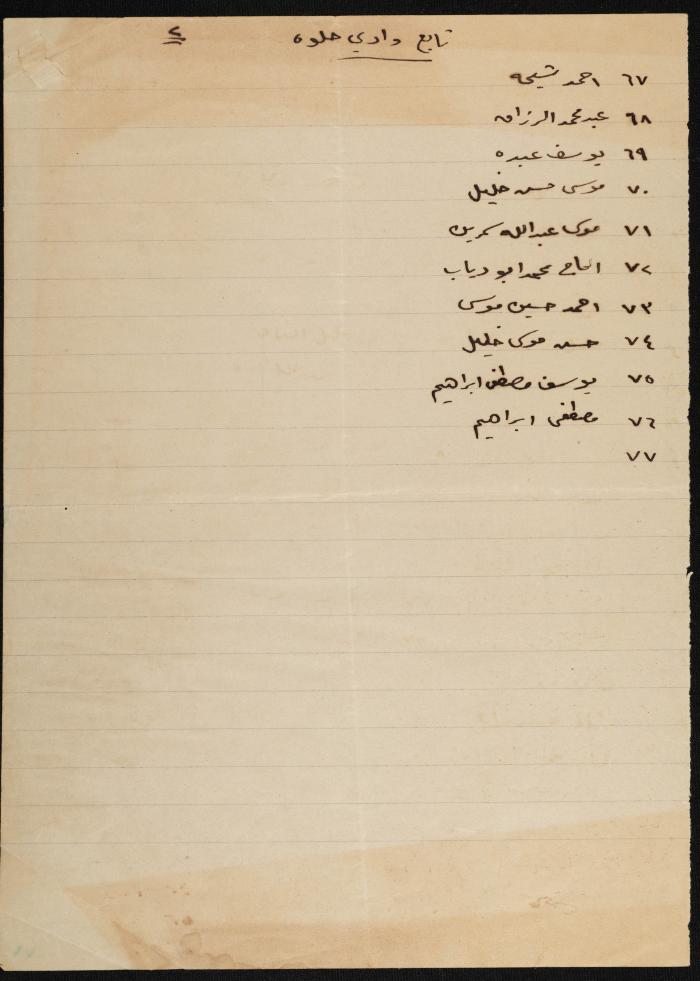 تابع وادي حلوه ٢
٦٧ احمد شيحه
٦٨ عبد محمد الرزاق
٦٩ يوسف عبده
٧٠ موسى حسن خليل
٧١ موسى عبدالله سمرين
٧٢ الحاج محمد ابو دياب
٧٣ احمد حسين موسى
٧٤ حسن موسى خليل
٧٥ يوسف مصطفى ابراهيم
٧٦ مصطفى ابراهيم
٧٧